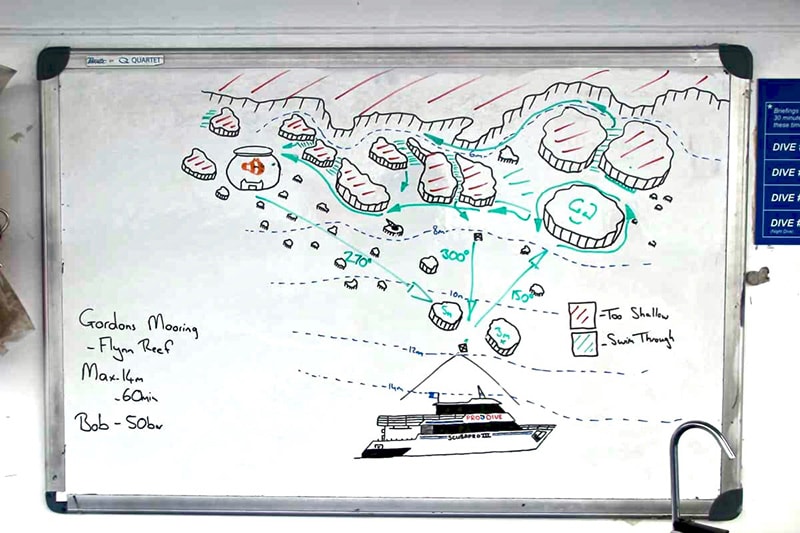 QUARTET
6m
8m
300°
270°
10m
150°
5m
3m
12m
14m
Too Shallow
Swim Through
Gordons Mooring
- Flynn Reef
Max - 14m
- 60min
Bob - 50bar
PRODIVE
SCUBAPRO III
* Briefings
30 minute
these time
DIVE #
DIVE #
DIVE #
DIVE #
(Night Dive)